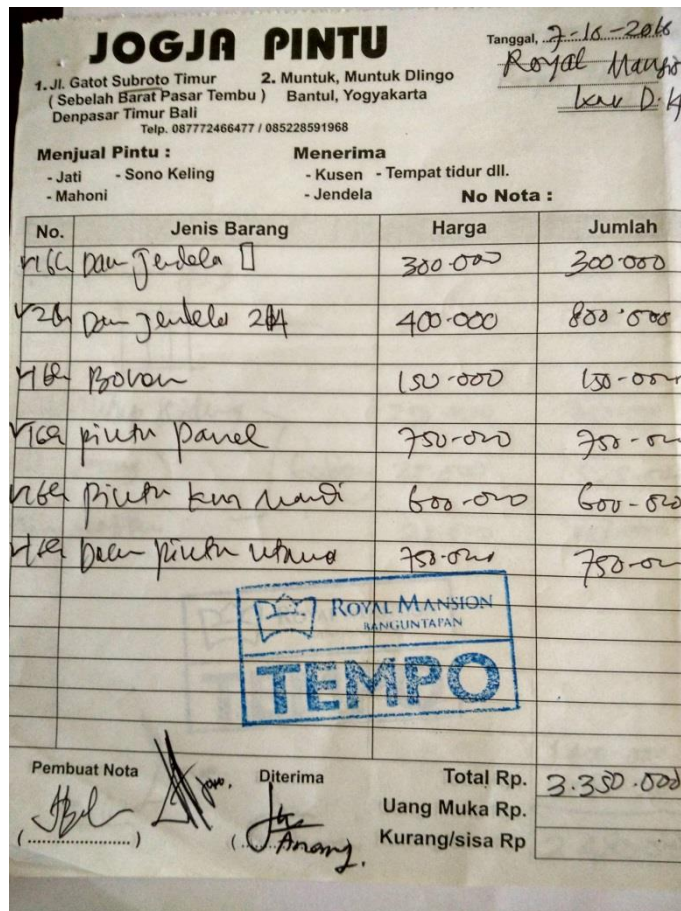 JOGJA PINTU
Tanggal, 7-10-2016
Royal Mansio
kav D.14
1. Jl. Gatot Subroto Timur
( Sebelah Barat Pasar Tembu )
Denpasar Timur Bali
2. Muntuk, Muntuk Dlingo
Bantul, Yogyakarta
Telp. 087772466477 / 085228591968
Menjual Pintu :
- Jati - Sono Keling
- Mahoni
Menerima
- Kusen - Tempat tidur dll.
- Jendela
No Nota :
No. Jenis Barang Harga Jumlah
Daun Jendela 300.000 300.000
Daun Jendela 400.000 800.000
Boven 150-000 150-000
pintu panel 750-000 750-000
Pintu km mandi 600-000 600-000
Daun pintu utama 750-000 750-000
ROYAL MANSION
BANGUNTAPAN
TEMPO
Pembuat Nota
Diterima
Anang.
Total Rp. 3.350.000
Uang Muka Rp.
Kurang/sisa Rp